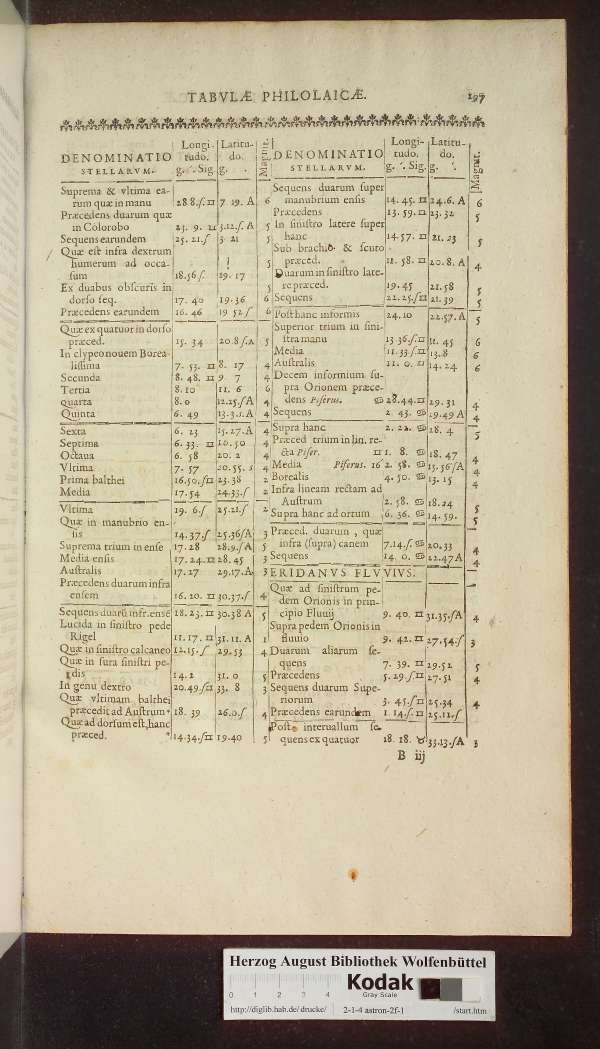 TABVLÆ PHILOLAICÆ. 197
DENOMINATIO STELLARVM. Longitudo. g. Sig. Latitudo. g. Magnit.
Suprema & vltima ea-
rum quæ in manu 28 8.ſ.♊ 7 19. A 6
Præcedens duarum quæ
in Colorobo 23. 9. ♊ 3.12.ſ. A 5
Sequens earundem 25. 21.ſ 3 21 5
Quæ eſt infra dextrum
humerum ad occa-
ſum 18.56 ſ. 19. 17 5
Ex duabus obſcuris in
dorſo ſeq. 17. 40 19.36 6
Præcedens earundem 16. 46 19 52 ſ 6
Quæ ex quatuor in dorſo
præced. 15. 34 20.8 ſ.A 5
In clypeo nouem Borea-
liſſima 7. 53. ♊ 8. 17 4
Secunda 8. 48. ♊ 9 7 4
Tertia 8. 10 11. 6 6
quarta 8. 0 12.25.ſ A 4
Quinta 6. 49 13.3.s. A 4
Sexta 6. 23 15.27. A 4
Septima 6. 33. ♊ 10. 50 4
Octaua 6. 58 20. 2 4
Vltima 7. 57 20.55. s 4
Prima balthei 16.50.ſ♊ 23.38 2
Media 17.54 24.33.ſ 2
Vltima 19. 6.ſ 25.21.ſ 2
Quæ in manubrio en-
ſis 14.37.ſ 25.36ſA 3
Suprema trium in enſe 17.28 28.9.ſ A 5
Media enſis 17. 24.♊ 28.45 3
Auſtralis 17.27 29.17.A 3
Præcedens duarum infra
enſem 16. 20. ♊ 30.37.ſ 4
Sequens duarũ infr.enſẽ 18. 23. ♊ 30.38 A 5
Lucida in ſiniſtro pede
Rigel 11. 17. ♊ 31.11. A 1
Quæ in ſiniſtro calcaneo 12.15. ſ 29.53 4
Quæ in ſura ſiniſtri pe-
dis 14.2 31. 0 5
In genu dextro 20.49.ſ♊ 33. 8 3
Quæ vltimam balthei
præcedit ad Auſtrum 18. 39 26.0.ſ 4
Quæ ad dorſum eſt, hanc
præced. 14.34.ſ♊ 19.40 5
DENOMINATIO STELLARVM. Longitudo. g. Sig. Latitudo. g. Magnit.
Sequens duarum ſuper
manubrium enſis 14. 45. ♊ 24.6. A 6
Præcedens 13. 59. ♊ 23. 32 5
In ſiniſtro latere ſuper
hanc 14.57. ♊ 21. 23 5
Sub brachio & ſcuto
præced. 11. 58. ♊ 20.8. A 4
Duarum in ſiniſtro late-
re præced. 19.45 21.58 5
Sequens 22.25.ſ♊ 21.39 5
Poſt hanc informis 24.10 22.57. A 5
Superior trium in ſini-
ſtra manu 13 36.ſ♊ 11. 45 6
Media 11.33 ſ♊ 13.8 6
Auſtralis 11. 0. ♊ 14. 24 6
Decem informium ſu-
pra Orionem præce-
dens Piferus. 28.44.♊ 29. 31 4
Sequens 2. 43. ♋ 29.49 A 4
Supra hanc 2. 22. ♋ 28. 4 5
Præced trium in lin. re-
cta Piſer. 1. 8. ♋ 18. 47 4
Media Piſerus. 16 2. 58. ♋ 15.56ſA 4
Borealis 4. 50. ♋ 13. 15 4
Infra lineam rectam ad
Auſtrum 2. 58. ♋ 18.24 5
Supra hanc ad ortum 6. 36. ♋ 14. 59. 5
Præced. duarum, quæ
infra (ſupra) canem 7.14.ſ.♋ 20.33 4
Sequens 14. 0. ♋ 22.47 A 4
ERIDANVS FLVVIVS.
Quæ ad ſiniſtrum pe-
dem Orionis in prin-
cipio Fluuij 9. 40. ♊ 31.35.ſA 4
Supra pedem Orionis in
fluuio 9. 42. ♊ 27.54.ſ 3
Duarum aliarum ſe-
quens 7. 39. ♊ 29.52 5
Præcedens 5. 29.ſ♊ 27.51 4
Sequens duarum Supe-
riorum 3. 45.ſ♊ 25.34 4
Præcedens earundem 1. 14.ſ♊ 25.11.ſ
Poſt interuallum ſe-
quens ex quatuor 18. 18. ♉ 33.13.ſA 3
B iij
Herzog August Bibliothek Wolfenbüttel
0 1 2 3 4
Kodak
Gray Scale
http://diglib.hab.de/ drucke/ 2-1-4 astron-2f-1 /start.htm